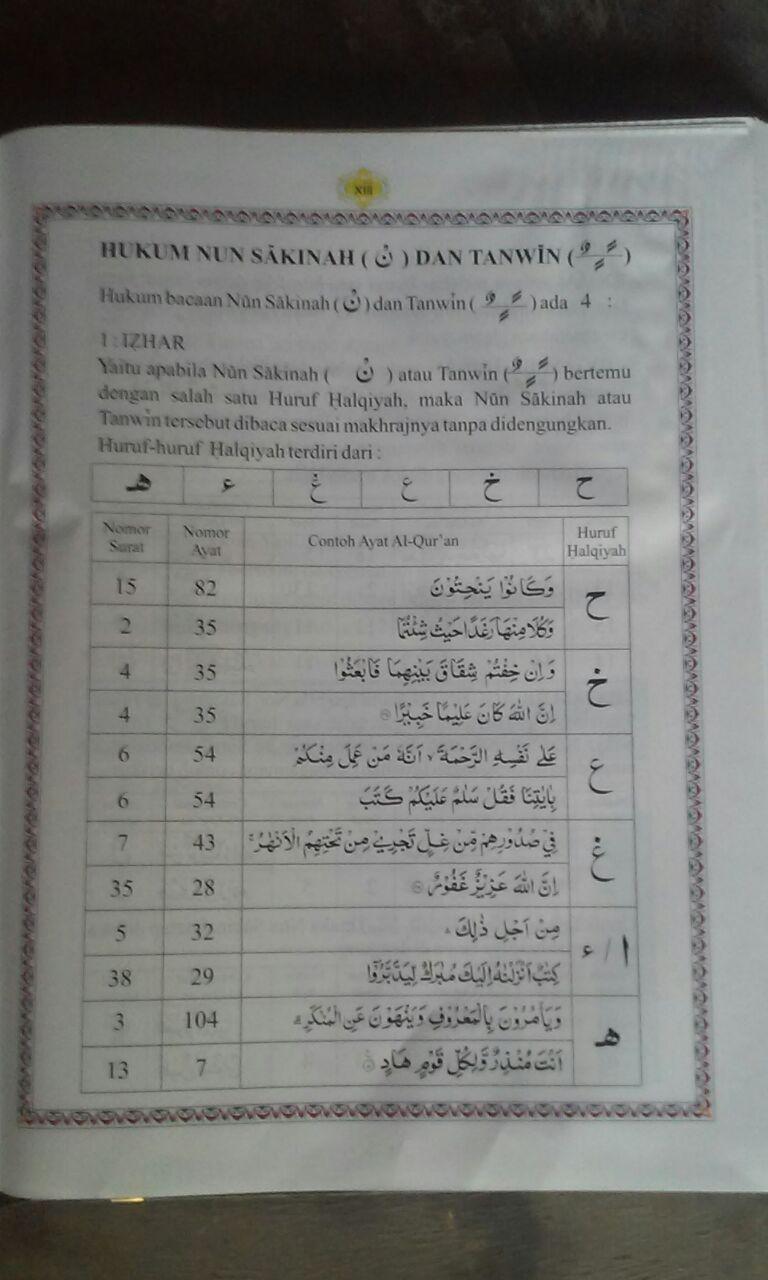 XIII
HUKUM NUN SĀKINAH ( نْ ) DAN TANWĪN ( ـًـٍـٌ )
Hukum bacaan Nūn Sākinah ( نْ ) dan Tanwīn ( ـًـٍـٌ ) ada 4 :
1 : IẒHAR
Yaitu apabila Nūn Sākinah ( نْ ) atau Tanwīn ( ـًـٍـٌ ) bertemu
dengan salah satu Huruf Ḥalqiyah, maka Nūn Sākinah atau
Tanwīn tersebut dibaca sesuai makhrajnya tanpa didengungkan.
Huruf-huruf Ḥalqiyah terdiri dari :
هـ ء غ ع خ ح
Nomor Surat Nomor Ayat Contoh Ayat Al-Qur'an Huruf Ḥalqiyah
15 82 وَكَانُوْا يَنْحِتُوْنَ ح
2 35 وَكُلَا مِنْهَا رَغَدًا حَيْثُ شِئْتُمَا
4 35 وَاِنْ خِفْتُمْ شِقَاقَ بَيْنِهِمَا فَابْعَثُوْا خ
4 35 اِنَّ اللّٰهَ كَانَ عَلِيْمًا خَبِيْرًا
6 54 عَلٰى نَفْسِهِ الرَّحْمَةَ ۙ اَنَّهٗ مَنْ عَمِلَ مِنْكُمْ ع
6 54 بِاٰيٰتِنَا فَقُلْ سَلٰمٌ عَلَيْكُمْ كَتَبَ
7 43 فِيْ صُدُوْرِهِمْ مِّنْ غِلٍّ تَجْرِيْ مِنْ تَحْتِهِمُ الْاَنْهٰرُ ۚ غ
35 28 اِنَّ اللّٰهَ عَزِيْزٌ غَفُوْرٌ
5 32 مِنْ اَجْلِ ذٰلِكَ ا / ء
38 29 كِتٰبٌ اَنْزَلْنٰهُ اِلَيْكَ مُبٰرَكٌ لِّيَدَّبَّرُوْٓا
3 104 وَيَأْمُرُوْنَ بِالْمَعْرُوْفِ وَيَنْهَوْنَ عَنِ الْمُنْكَرِ ۗ هـ
13 7 اَنْتَ مُنْذِرٌ وَّلِكُلِّ قَوْمٍ هَادٍ